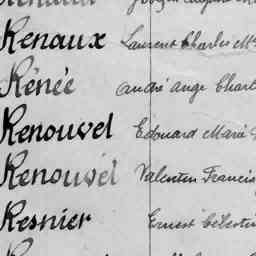 Renaux Laurent Charles M
Rénée André Ange Charl
Renouvel Edouard Marie
Renouvel Valentin Francis
Resnier Ernest Célestin